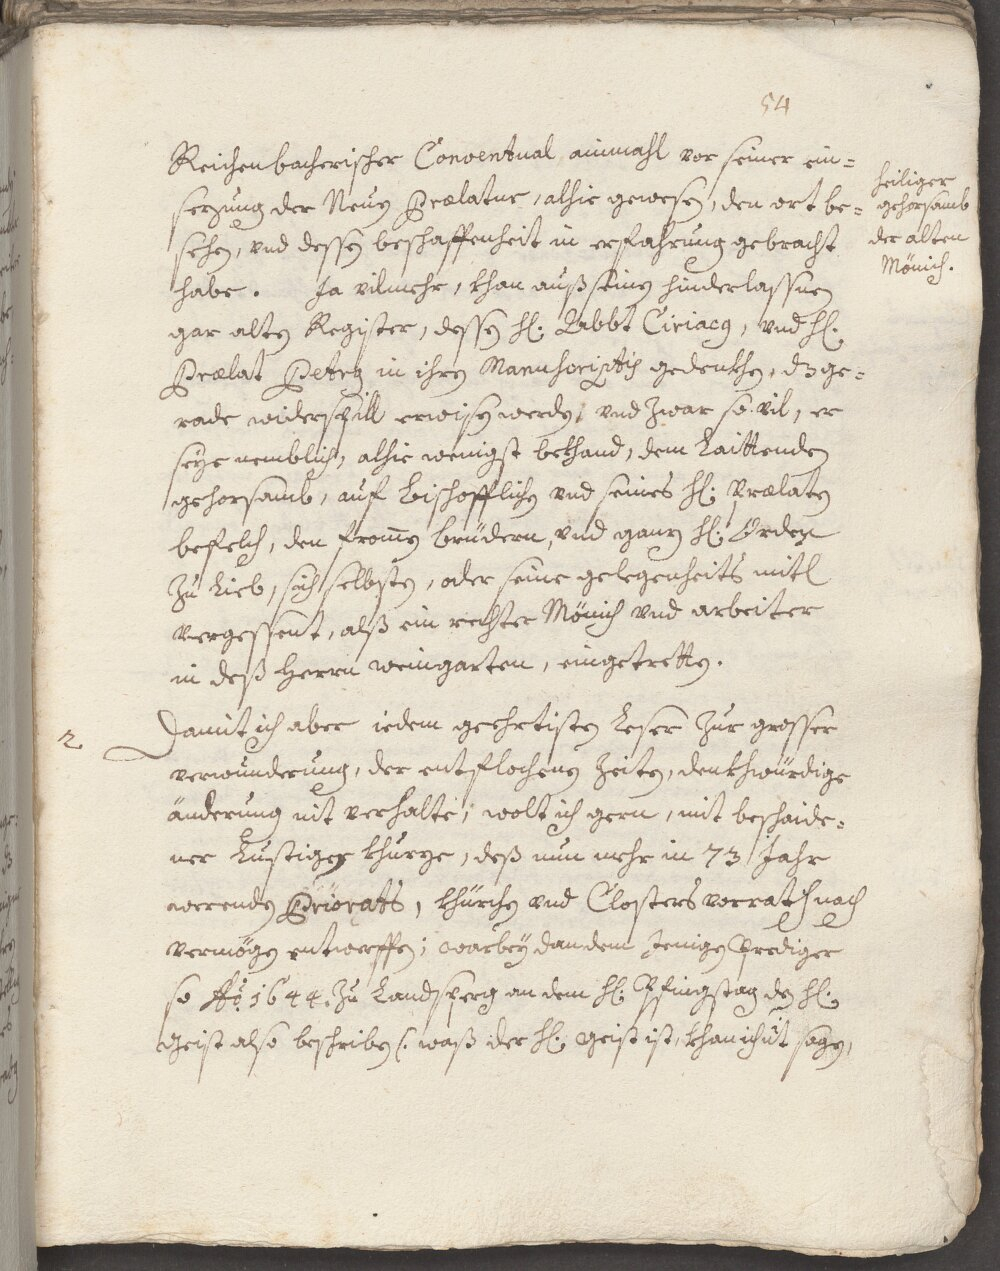 54
Reichenbacherischer Conventual ainmahl vor seiner ein=
sezung der Neuen Prælatur, alhie gewesen, den ort be=
sehen, vnd dessen beschaffenheit in erfahrung gebracht
habe. Ja vilmehr, khan auß seinen hinderlassnen
gar alten Register, dessen H: Abbt Ciriacg, vnd H:
Prælat Petrg in ihren Manuschriptis gedenkhen, dz ge=
rade widerspill erwisen werden, vnd zwar so vil, er
seye nemblich, alhie wenigst bekhand, dem Laittenden
gehorsamb, auf Bischofflichen vnd seines H: Prælaten
befelch, den from̄en brüdern, vnd ganz H: Orden
zu Lieb, sich selbsten, oder seine gelegenheits mitl
vergessent, alß ein rechter Mönich vnd arbeiter
in deß Herrn weingarten, eingetretten.
heiliger
gehorsamb
der alten
Mönich.
2
Damit ich aber iedem geehrtisten Leser zur grosser
verwunderung, der entflochenen Zeiten, denkhwürdige
änderung nit verhalte, wolt ich gern, mit beschaide=
ner Lustiger khurze, deß nun mehr in 73 Jahr
werenden Priorats, khürchen vnd Closters vorrath nach
vermögen entwerffen; warbey dan dem Jenigen Prediger
so Aō 1644. zu Landsperg an dem H: Pfingstag den H:
Geist also beschriben (: waß der H: geist ist, khan ich nit sagen,